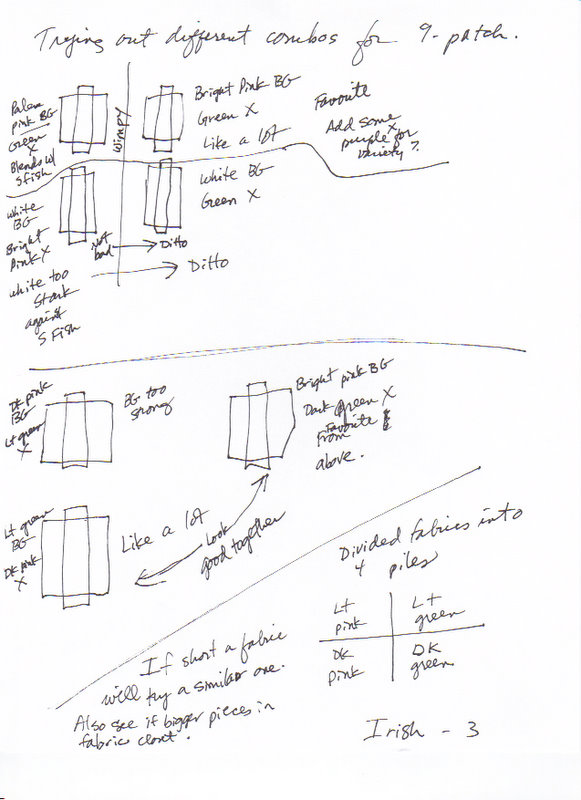 Trying out different combos for 9-patch.
Paler
pink BG
Green
X
Blends w/
5 fish
Wimpy
Bright Pink BG
Green X
Like a lot
Favorite
Add some
purple for
variety?
White
BG
Bright
Pink X
white too
stark
against
5 Fish
Not
bad
Ditto
Ditto
White BG
Green X
Dk pink
BG
Lt green
X
BG too
strong
Bright pink BG
Dark Green X
Favorite
from
above.
Lt green
BG
Dk pink
X
Like a lot
Look
good together
Divided fabrics into
4 piles
Lt
pink
Lt
green
DK
Pink
DK
green
If short a fabric
will try a similar one.
Also see if bigger pieces in
fabric closet.
Irish - 3